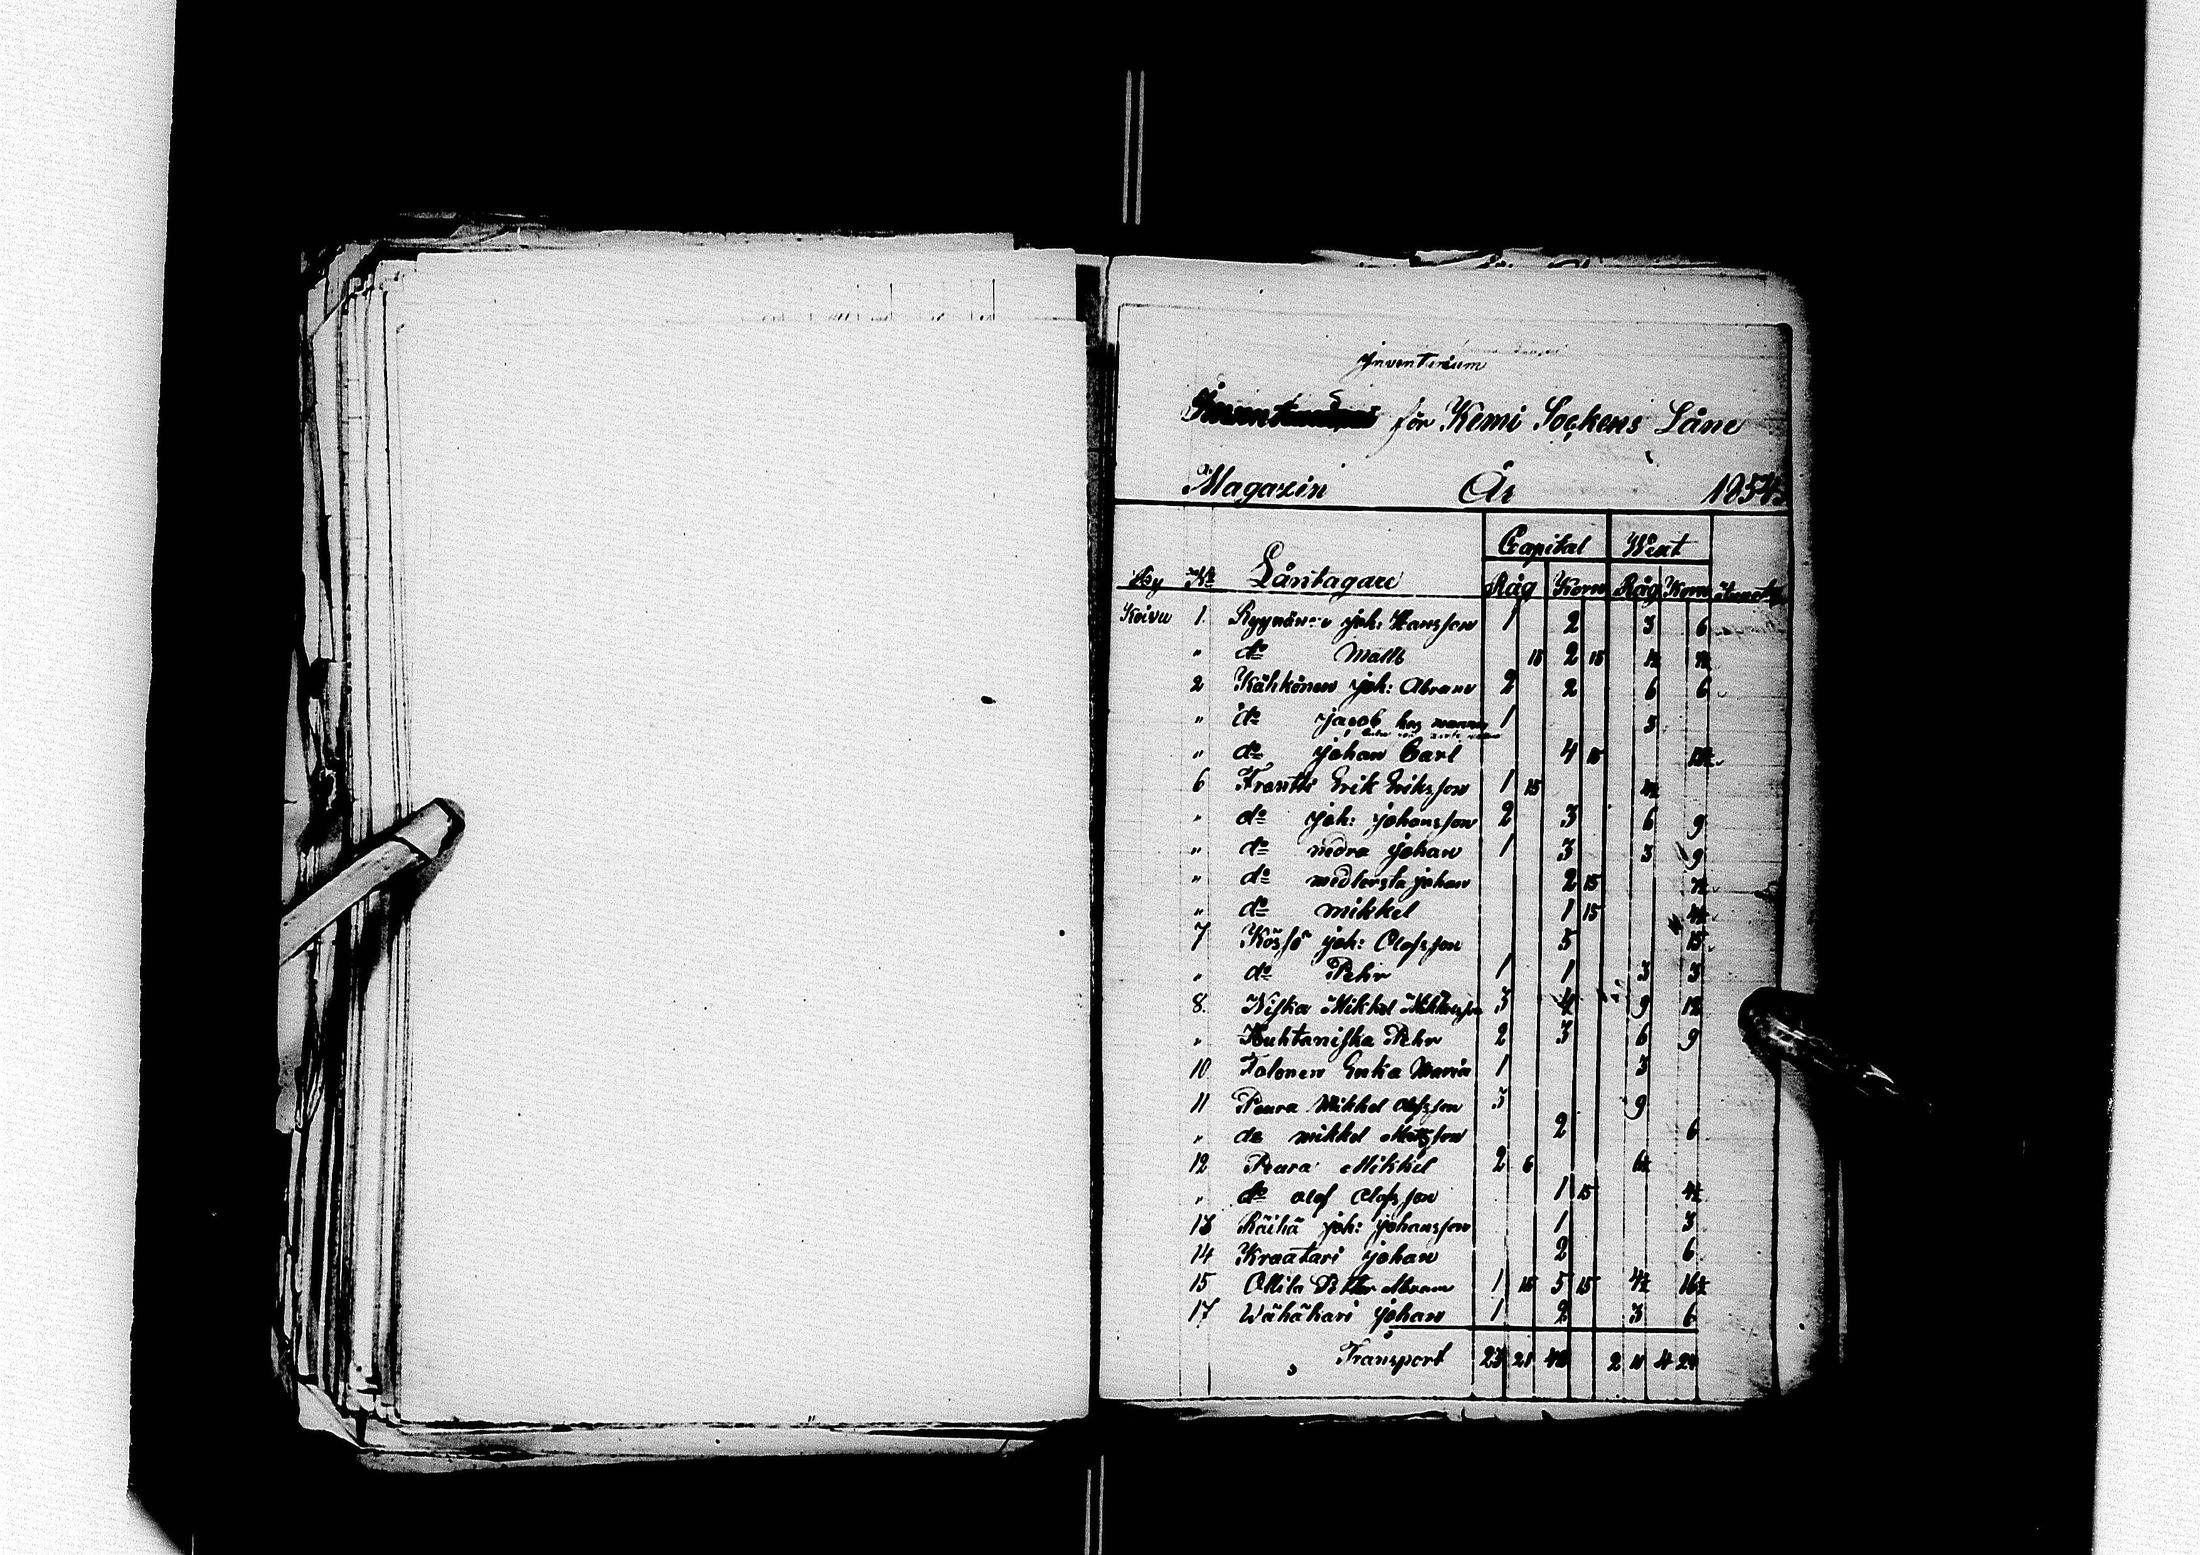 Inventarium
för Kemi Sockens Låne
Magazin År 1854.
Capital Rent
By No Låntagare Råg Korn Råg Korn
Koivu 1. Ryynänen joh: Hansson 1 2 3 6
" do Matts 15 2 15 1½ 7½
2 Kähkönen joh: Abram 2 2 6 6
" do Jacob 1 3
" do johan Carl 4 15 13½
6 Frantti Erik Eriksson 1 15 4½
" do joh: johansson 2 3 6 9
" do nedra johan 1 3 3 9
" do medlersta johan 2 15 7½
" do mikkel 1 15 4½
7 Kössö joh: Olofsson 5 15
" do Pehr 1 1 3 3
8. Niska Mikkel Mikkelsson 3 4 9 12
" Huhtaniska Pehr 2 3 6 9
10 Tolonen Maria 1 3
11 Peura Mikkel Olofsson 3 9
" do mikkel Matsson 2 6
12 Peura Mikkel 2 6 6½
" do olof Olofsson 1 15 4½
13 Räihä joh: johansson 1 3
14 Kraatari johan 2 6
15 Ollila Petter Abram 1 15 5 15 4½ 16½
17 Wähäkari johan 1 2 3 6
Transport 23 21 48 2 11 4 24